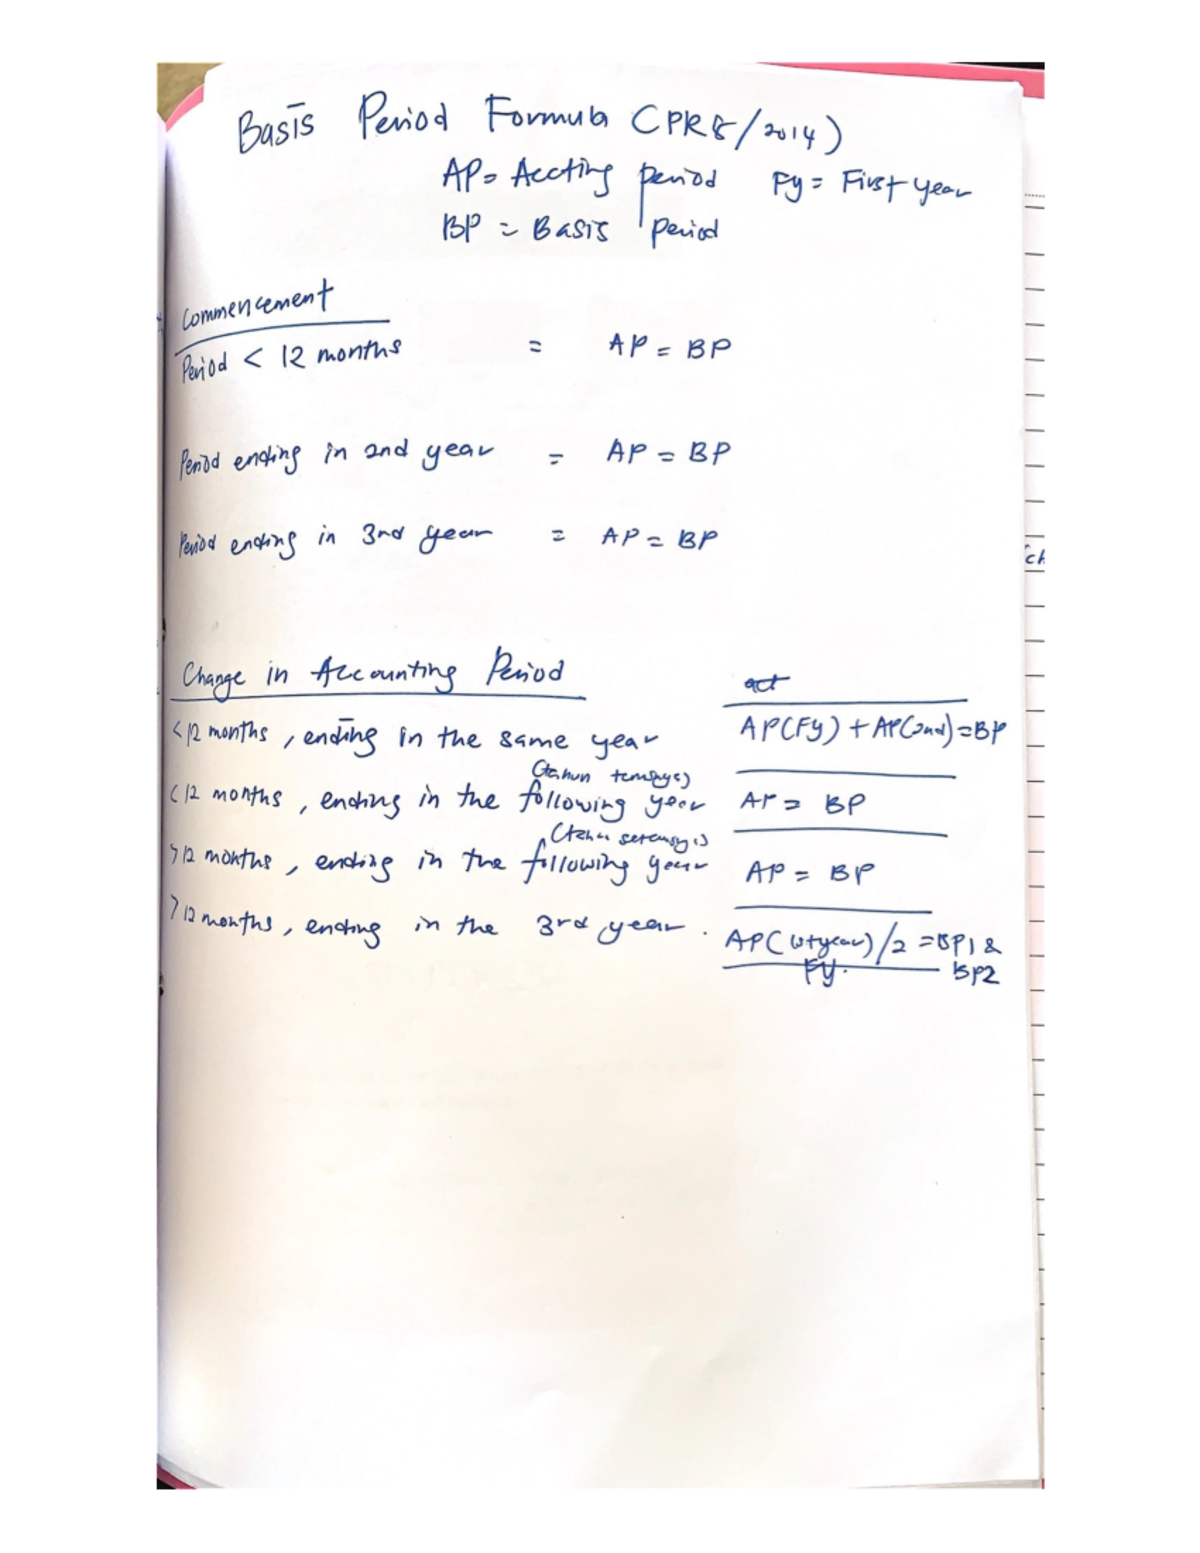 Basis Period Formula (PR8/2014)
AP = Accting period Fy = First year
BP = Basis Period
Commencement
Period < 12 months = AP = BP
Period ending in 2nd year = AP = BP
Period ending in 3rd year = AP = BP
Change in Accounting Period
< 12 months, ending in the same year AP(FY) + AP(2nd) = BP
< 12 months, ending in the following year AP = BP
> 12 months, ending in the following year AP = BP
> 12 months, ending in the 3rd year. AP( )/2 = BP1 &
FY. BP2